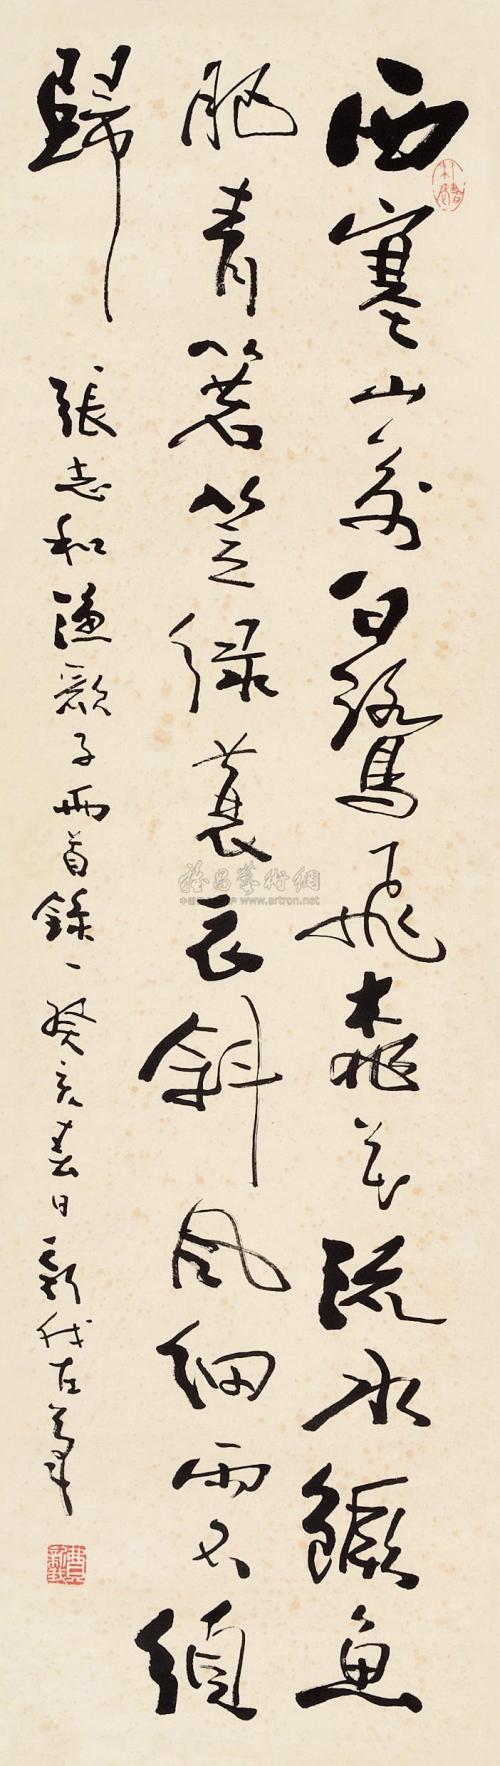 西塞山前白鷺飛桃花流水鱖魚
肥青箬笠綠蓑衣斜風細雨不須
歸
張志和漁歌子兩首錄一癸亥春日新我左筆
費新我
雅昌藝術網
www.artron.net